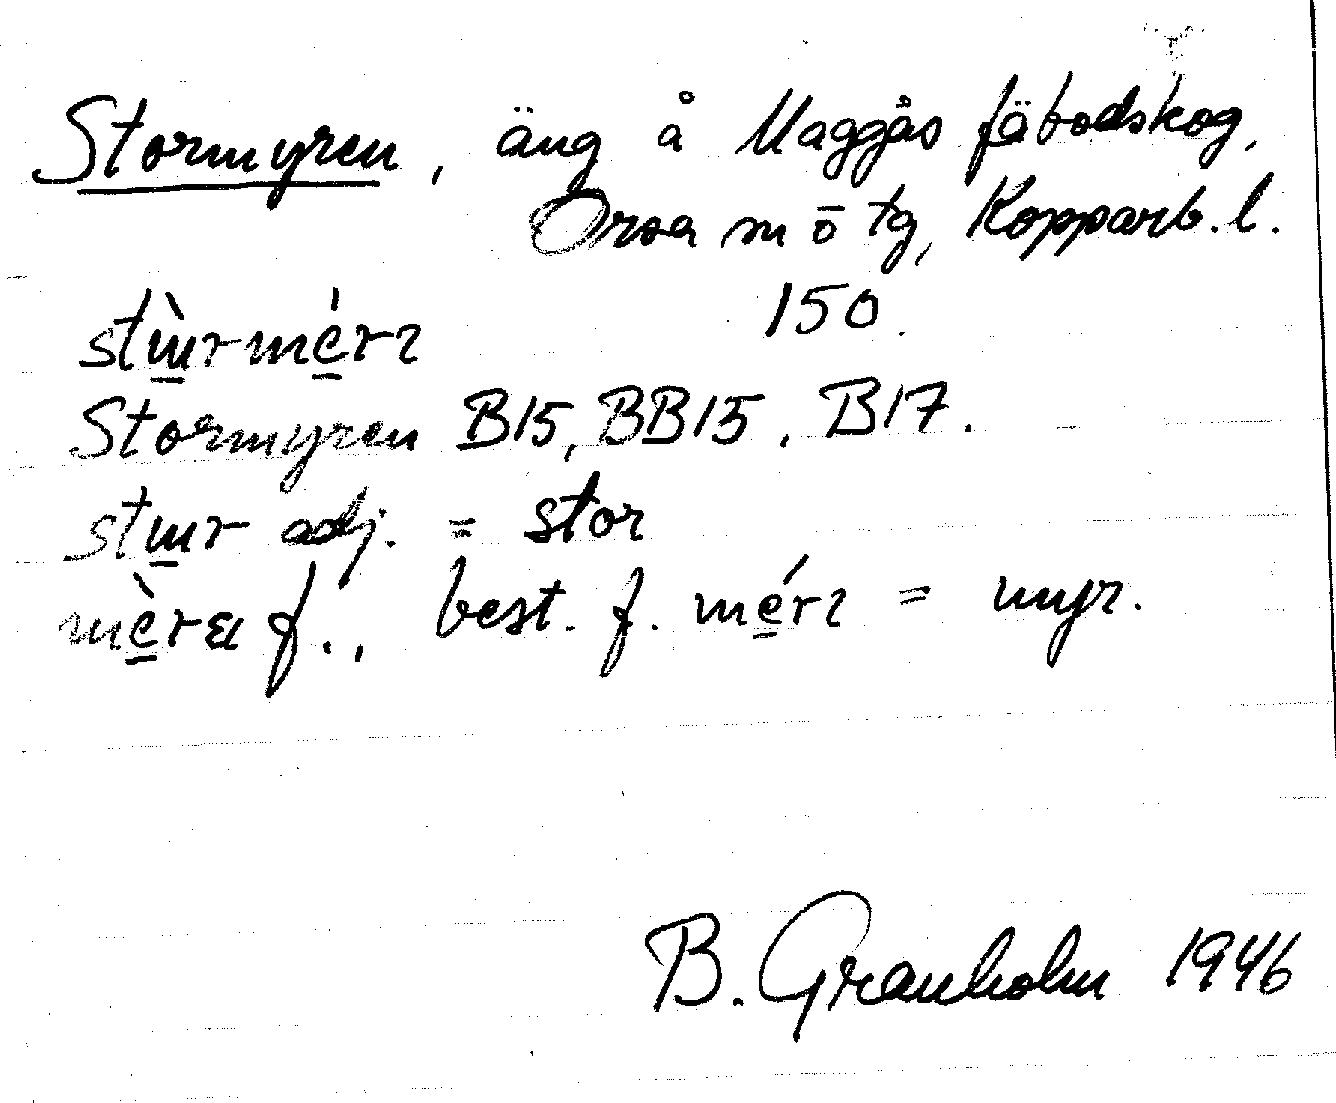 Stormyren, äng å Maggås fäbodskog,
Orsa sn ö tg, Kopparb. l.
150.
Stormyren B15, BB15, B17.
adj. = stor
f., best. f. = myr.
B. Granholm 1946